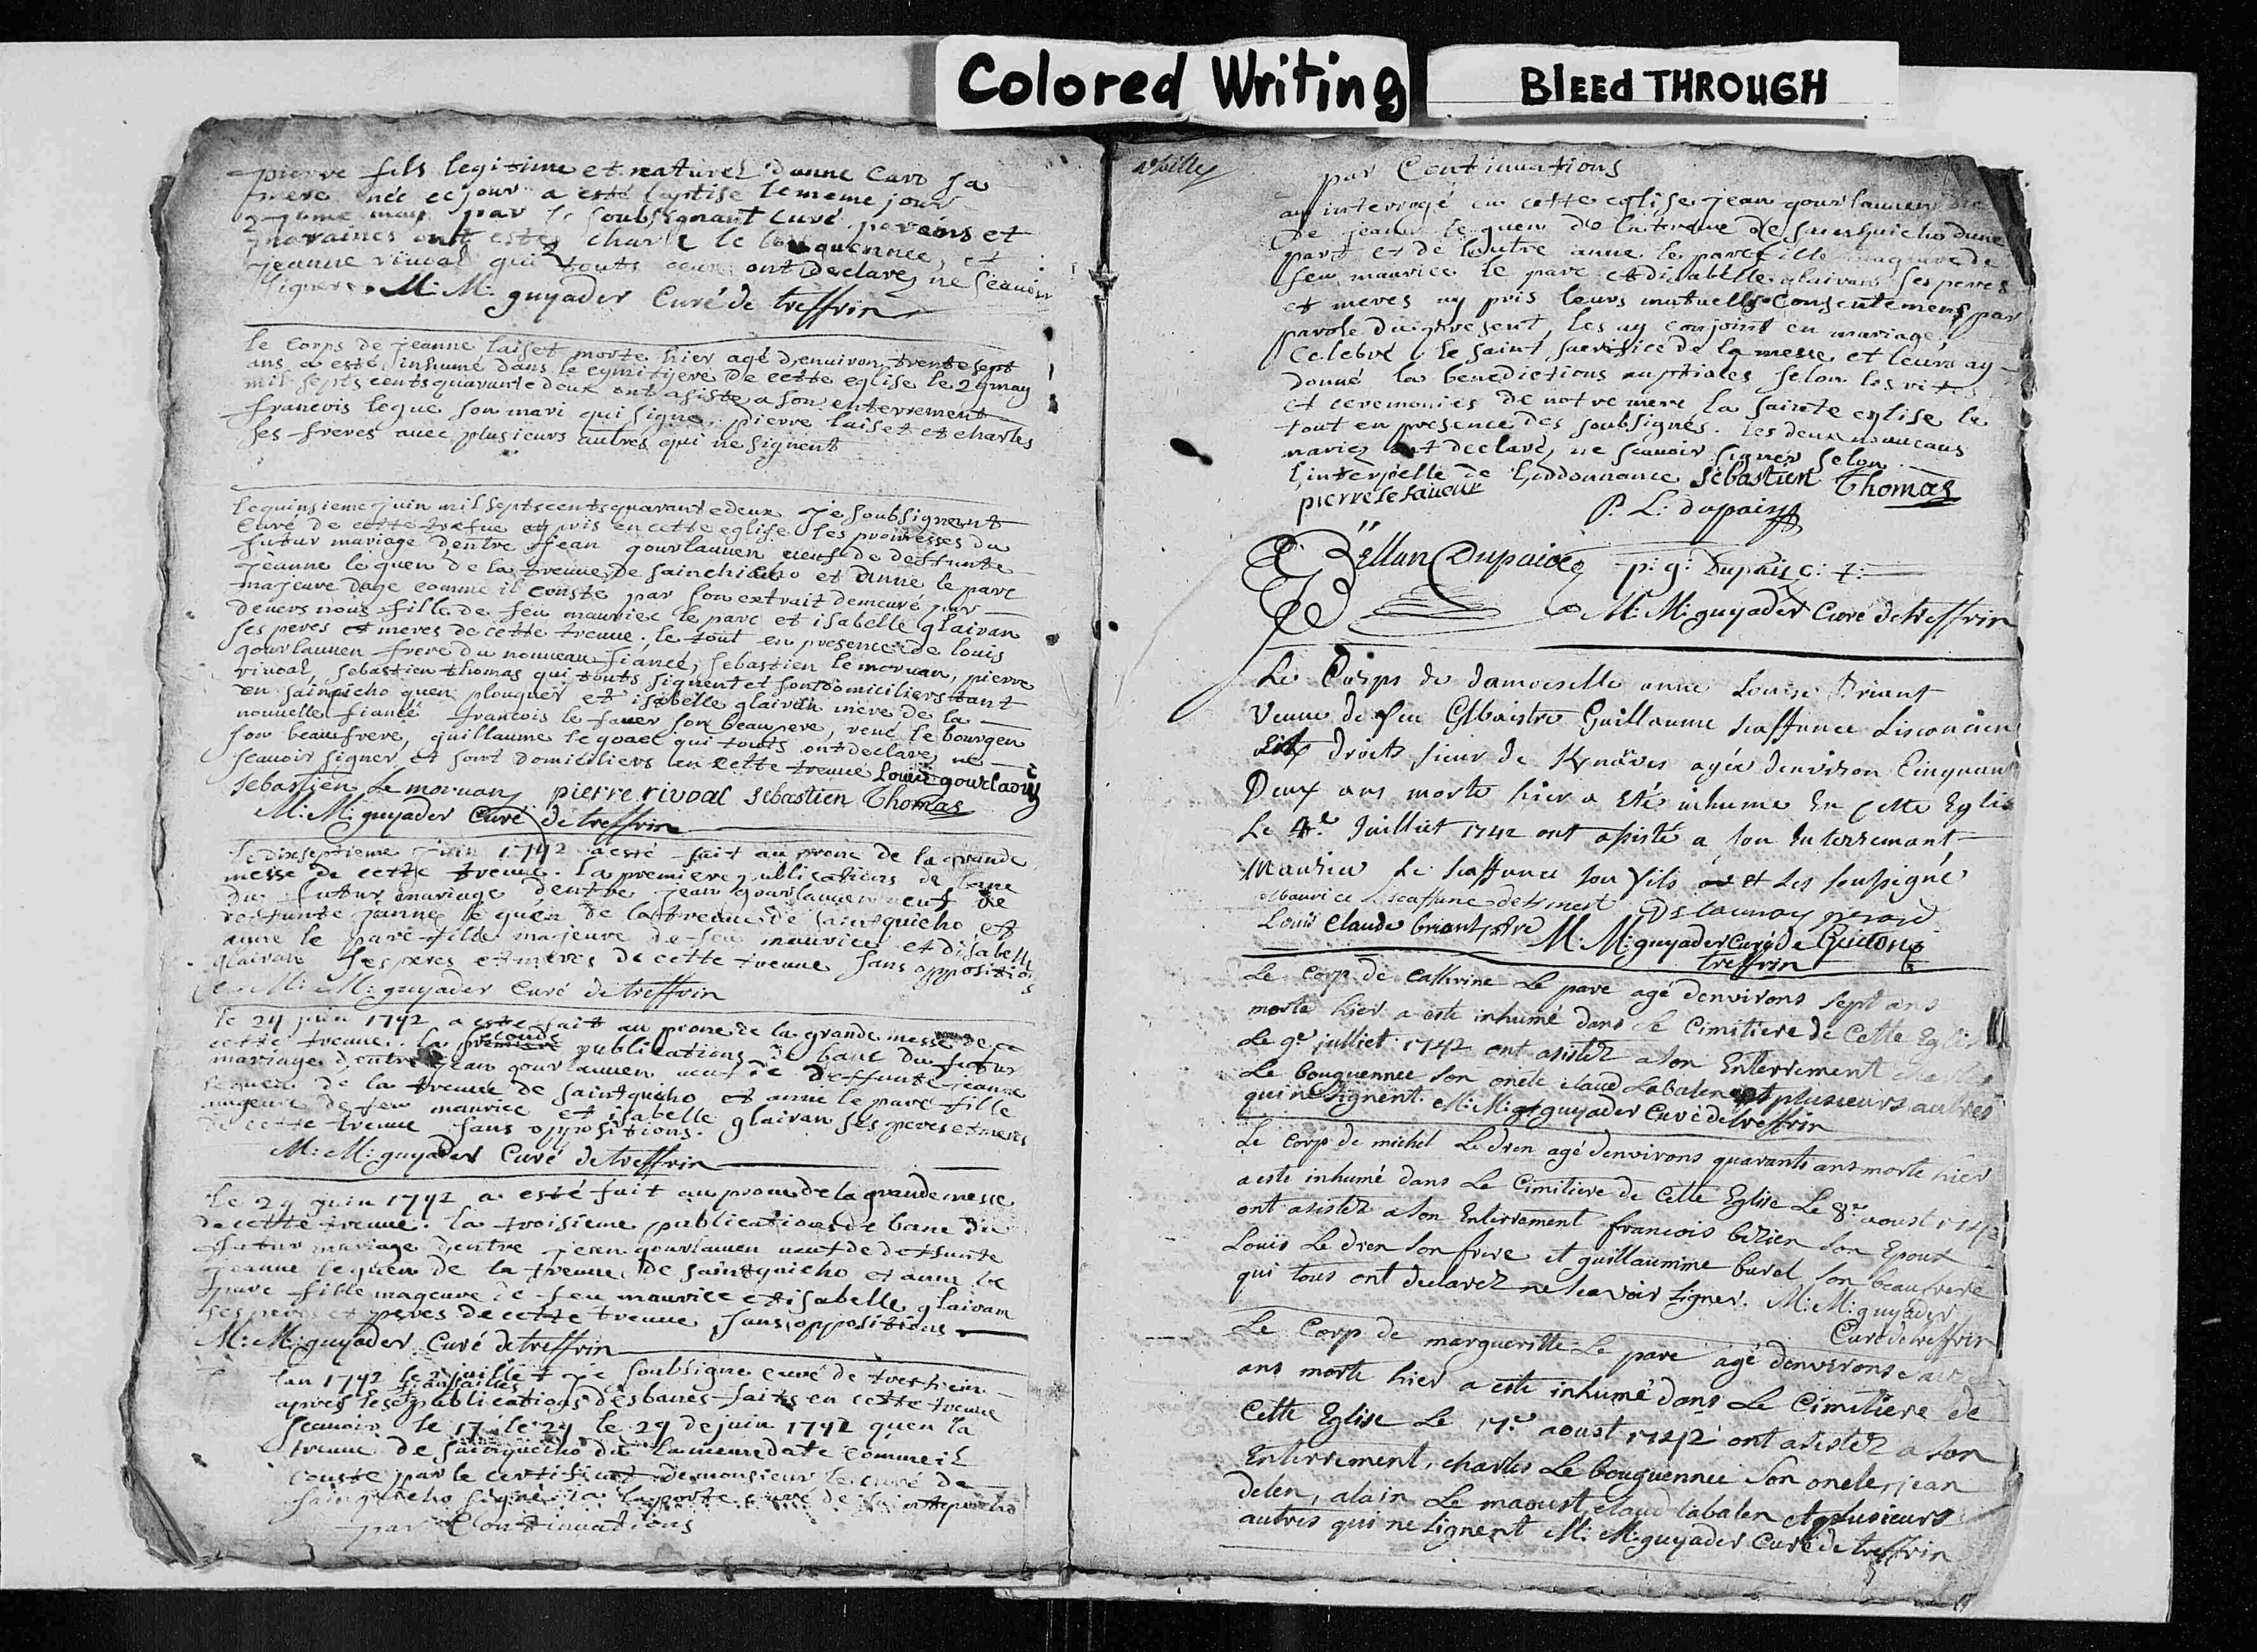 Colored Writing
BlEEd THROUGH
pierre fils legitime et naturel danne Caro sa
mere née ce jour a esté baptise le meme jour
may par le soubsignant curé parains et
maraines ont estés charle le bouguennec, et
jeanne rivoal qui touts deux ont declarez ne scavoir
signer. M: M: guyader Curé de treffrin
le Corps de jeanne laiset morte hier agé d'enuiron trente sept
ans a esté inhumé dans le cymitiere de cette eglise le 29 may
mil septs cents quarante deux ont asiste a son enterrement
francois leque son mari qui signe, pierre laiset et charles
ses freres auec plusieurs autres qui ne signent
le quinsieme juin mil septscents quarante deux je soubsignant
Curé de cette trefue ay pris en cette eglise les promesses du
futur mariage d'entre jean gourlauen veuf de deffunte
jeanne le quen de la treuue de et anne le parc
majeure dage comme il conste par son extrait demeuré par
deuers nous fille de feu maurice le parc et isabelle glaivan
ses peres et meres de cette treuue. le tout en presence de louis
gourlauen frere du nouveau fiancé, sebastien le moruan, pierre
rivoal, sebastien thomas qui touts signent et sont domiciliers tant
en quen plouguer et isabelle glaivan mere de la
nouuelle fiancé francois le fauer son beaupere, le bourgen
son beaufrere, guillaume le goaec qui touts ont declare ne
scauoir signer et sont domiciliers en cette treuue Louis gourlaouen
sebastien Le moruan pierre rivoal sébastien Thomas
M: M: guyader Curé de treffrin
le dixseptieme juin 1742 a esté fait au prone de la grande
messe de cette treuue. la premiere publications de banc
du futur mariage d'entre jean gourlauen veuf de
deffunte jeanne le quen de la treuue de saintquicho et
anne le parc fille majeure de feu maurice et disabelle
glaivan ses peres et meres de cette treuue sans oppositions
M: M: guyader Curé de treffrin
le 24 juin 1742 a esté fait au prone de la grande messe de
cette treuue. la seconde publications de banc du futur
mariage d'entre jean gourlauen veuf de deffunte jeanne
lequen de la treuue de saintquicho et anne le parc fille
mageure de feu maurice et isabelle glaivan ses peres et meres
de cette treuue sans oppositions.
M: M: guyader Curé de treffrin
le 29 juin 1742 a esté fait au prone de la grande messe
de cette treuue. la troisieme publications de banc du
futur mariage dentre jean gourlauen veuf de deffunte
jeanne lequen de la treuue de saintquicho et anne le
parc fille mageure de feu maurice et isabelle glaivan
ses peres et meres de cette treuue sans oppositions
M: M: guyader Curé de treffrin
lan 1742 le juillet je soubsigne curé de
fiansailles
apres les et publications des bancs faits en cette treuue
scauoir le 17 le 24 le 29 de juin 1742 quen la
treuue de saintquicho du la meme date comme il
conste par le certificat de monsieur le curé de
saintquicho signé laporte curé de saintquicho
par Continuations
par Continuations
ay interrogé en cette eglise jean gourlauen
de jeanne le quen de la treuue de saintquicho dune
part et de lautre anne le parc fille mageure de
feu maurice le parc et disabelle glaivan ses peres
et meres ay pris leurs mutuells consentemens par
parole du present, les ay conjoint en mariage,
Celebré le saint sacrifice de la messe et leurs ay
donné la benedictions nuptiales selon les rites
et ceremonies de notre mere la sainte eglise le
tout en presence des soubsignés. les deux nouueaux
mariez ont declaré ne scauoir signer selon
linterpellé de lordonnance sébastien Thomas
pierre le faueur
P. L: dupain
p: g: Dupais c: t:
M: M: guyader Curé de treffrin
Le Corps de damoiselle anne Louise Briant
Veuue de feu Guillaume scaffunec
droits sieur de agée denviron Cinquante
Deux ans morte hier a Eté inhume En Cette Eglise
Le 4e Juilliet 1742 ont assisté a son Enterremant
Maurice Le scaffunec son fils et Les soussigné
Maurice scaffunec Delaunay
Louis Claude briant ptre M: M: guyader Curé de
treffrin
Le Corp de Catherine Le parc agé denvirons sept ans
morte hier a esté inhumé dans Le Cimitiere de Cette Eglise
Le 9e julliet 1742 ont asistez a son Enterrement charles
Le bouguennec son oncle claud Labalen et plusieurs autres
qui ne signent. M: M: guyader Curé de treffrin
Le Corp de michel Le dren agé denvirons quarants ans morte hier
a esté inhumé dans Le Cimitiere de Cette Eglise Le 8e aoust 1742
ont asistez a son Enterrement francois bizien son Epoux
Louis Le dren son frere et guillaumme burel son beaufrere
qui tous ont declarez ne scavoir signer. M: M: guyader
Curé de treffrin
Le Corp de margueritte Le parc agé denvirons
ans morte hier a esté inhumé dans Le Cimitiere de
Cette Eglise Le 17e aoust 1742 ont asistez a son
Enterrement, charles Le bouguennec son oncle, jean
delen, alain Le claud labalen et plusieurs
autres qui ne signent M: M: guyader Curé de treffrin